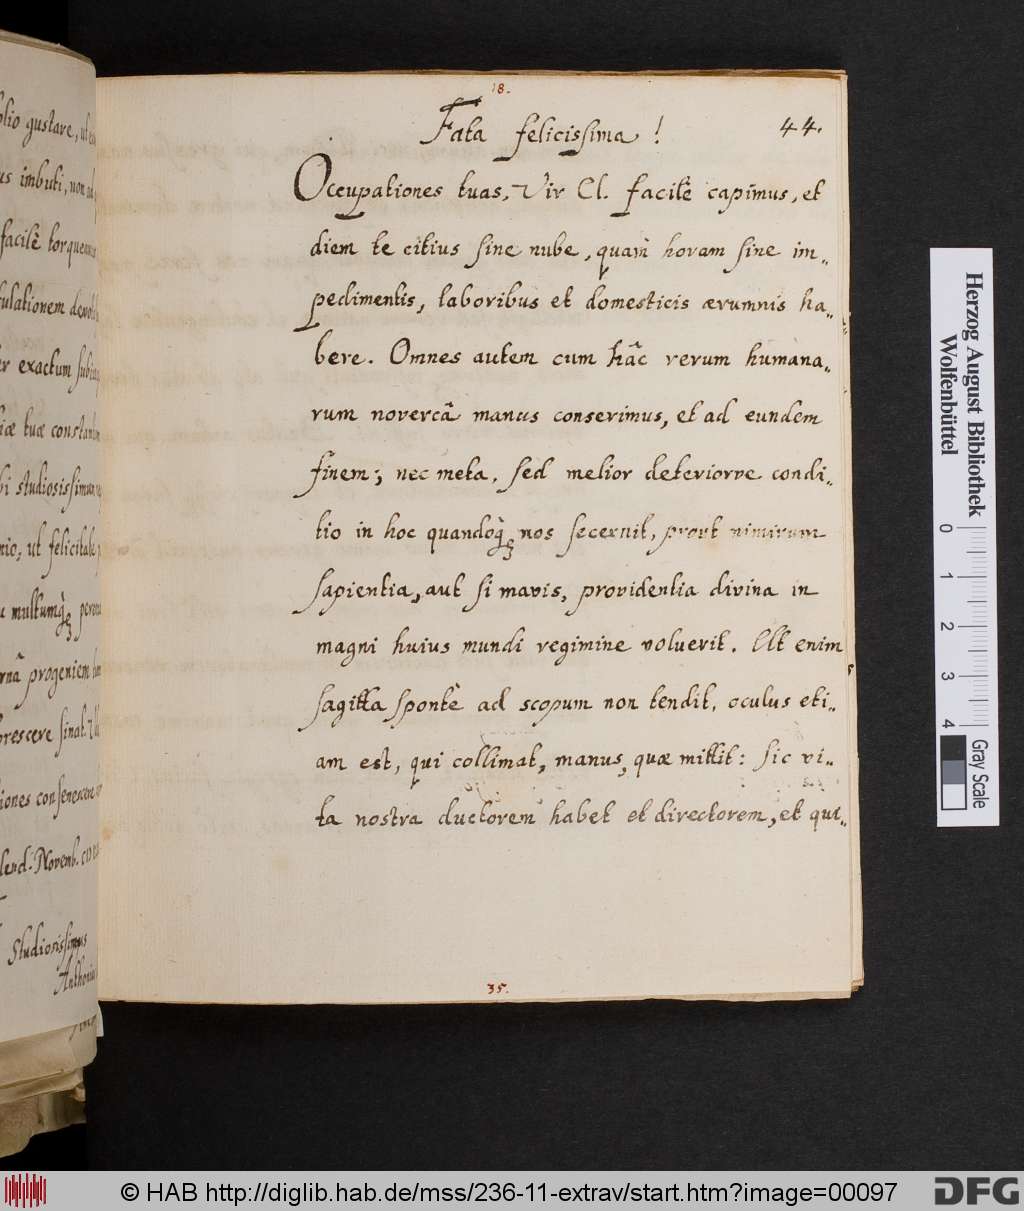 18.
44.
Fata felicissima!
Occupationes tuas, Vir Cl. facilè capimus, et
diem te citius sine nube, quam horam sine im„
pedimentis, laboribus et domesticis ærumnis ha„
bere. Omnes autem cum hâc rerum humana„
rum novercâ manus conserimus, et ad eundem
finem; nec meta, sed melior deteriorve condi„
tio in hoc quandoq́; nos secernit, prout nimirum
sapientia, aut si mavis, providentia divina in
magni huius mundi regimine voluerit. Ut enim
sagitta spontè ad scopum non tendit, oculus eti„
am est, qui collimat, manus, quæ mittit: sic vi„
ta nostra ductorem habet et directorem, et qui„
35.
blio gustare, ut
us imbuti, non ad
facilè torquemur
er exactum
iæ tuæ constantem
bi studiosissimum
nio, ut felicitate
multumq́;
progeniem
sinat.
iones consenescere
Novemb.
Studiosissimus
Anthonius
Herzog August Bibliothek
Wolfenbüttel
0 1 2 3 4
Gray Scale
© HAB http://diglib.hab.de/mss/236-11-extrav/start.htm?image=00097
DFG